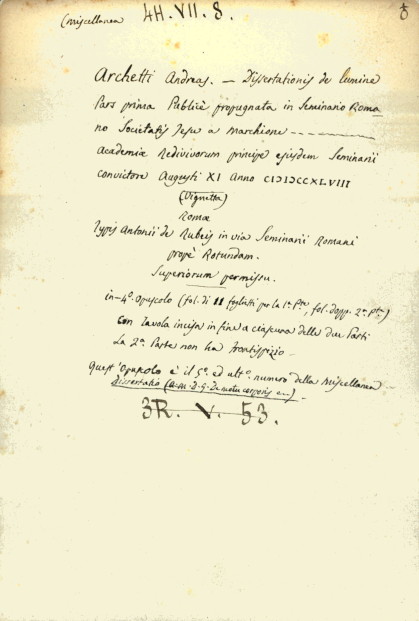 (Miscellanea 4H. VII. 8.
Archetti Andreas. — Dissertationis de lumine
Pars prima Publicè propugnata in Seminario Roma
no Societatis Jesu a Marchione
Academiæ Redivivorum principe ejusdem Seminarii
convictore Augusti XI Anno CIↃIↃCCXLVIII
(Vignetta)
Romæ
Typis Antonii de Rubeis in via Seminarii Romani
propè Rotundam.
Superiorum permissu.
in-4.º opuscolo (fol. di 11 foglietti per la 1.ª Pte, fol. dopp. 2.ª pte.)
con Tavola incisa in fine a ciascuna delle due Parti
La 2.ª Parte non ha frontispizio.
Quest'opuscolo è il 5.º ed ult.º numero della Miscellanea
Dissertatio (a.M.D.G. De motu corporis
3R. V. 53.